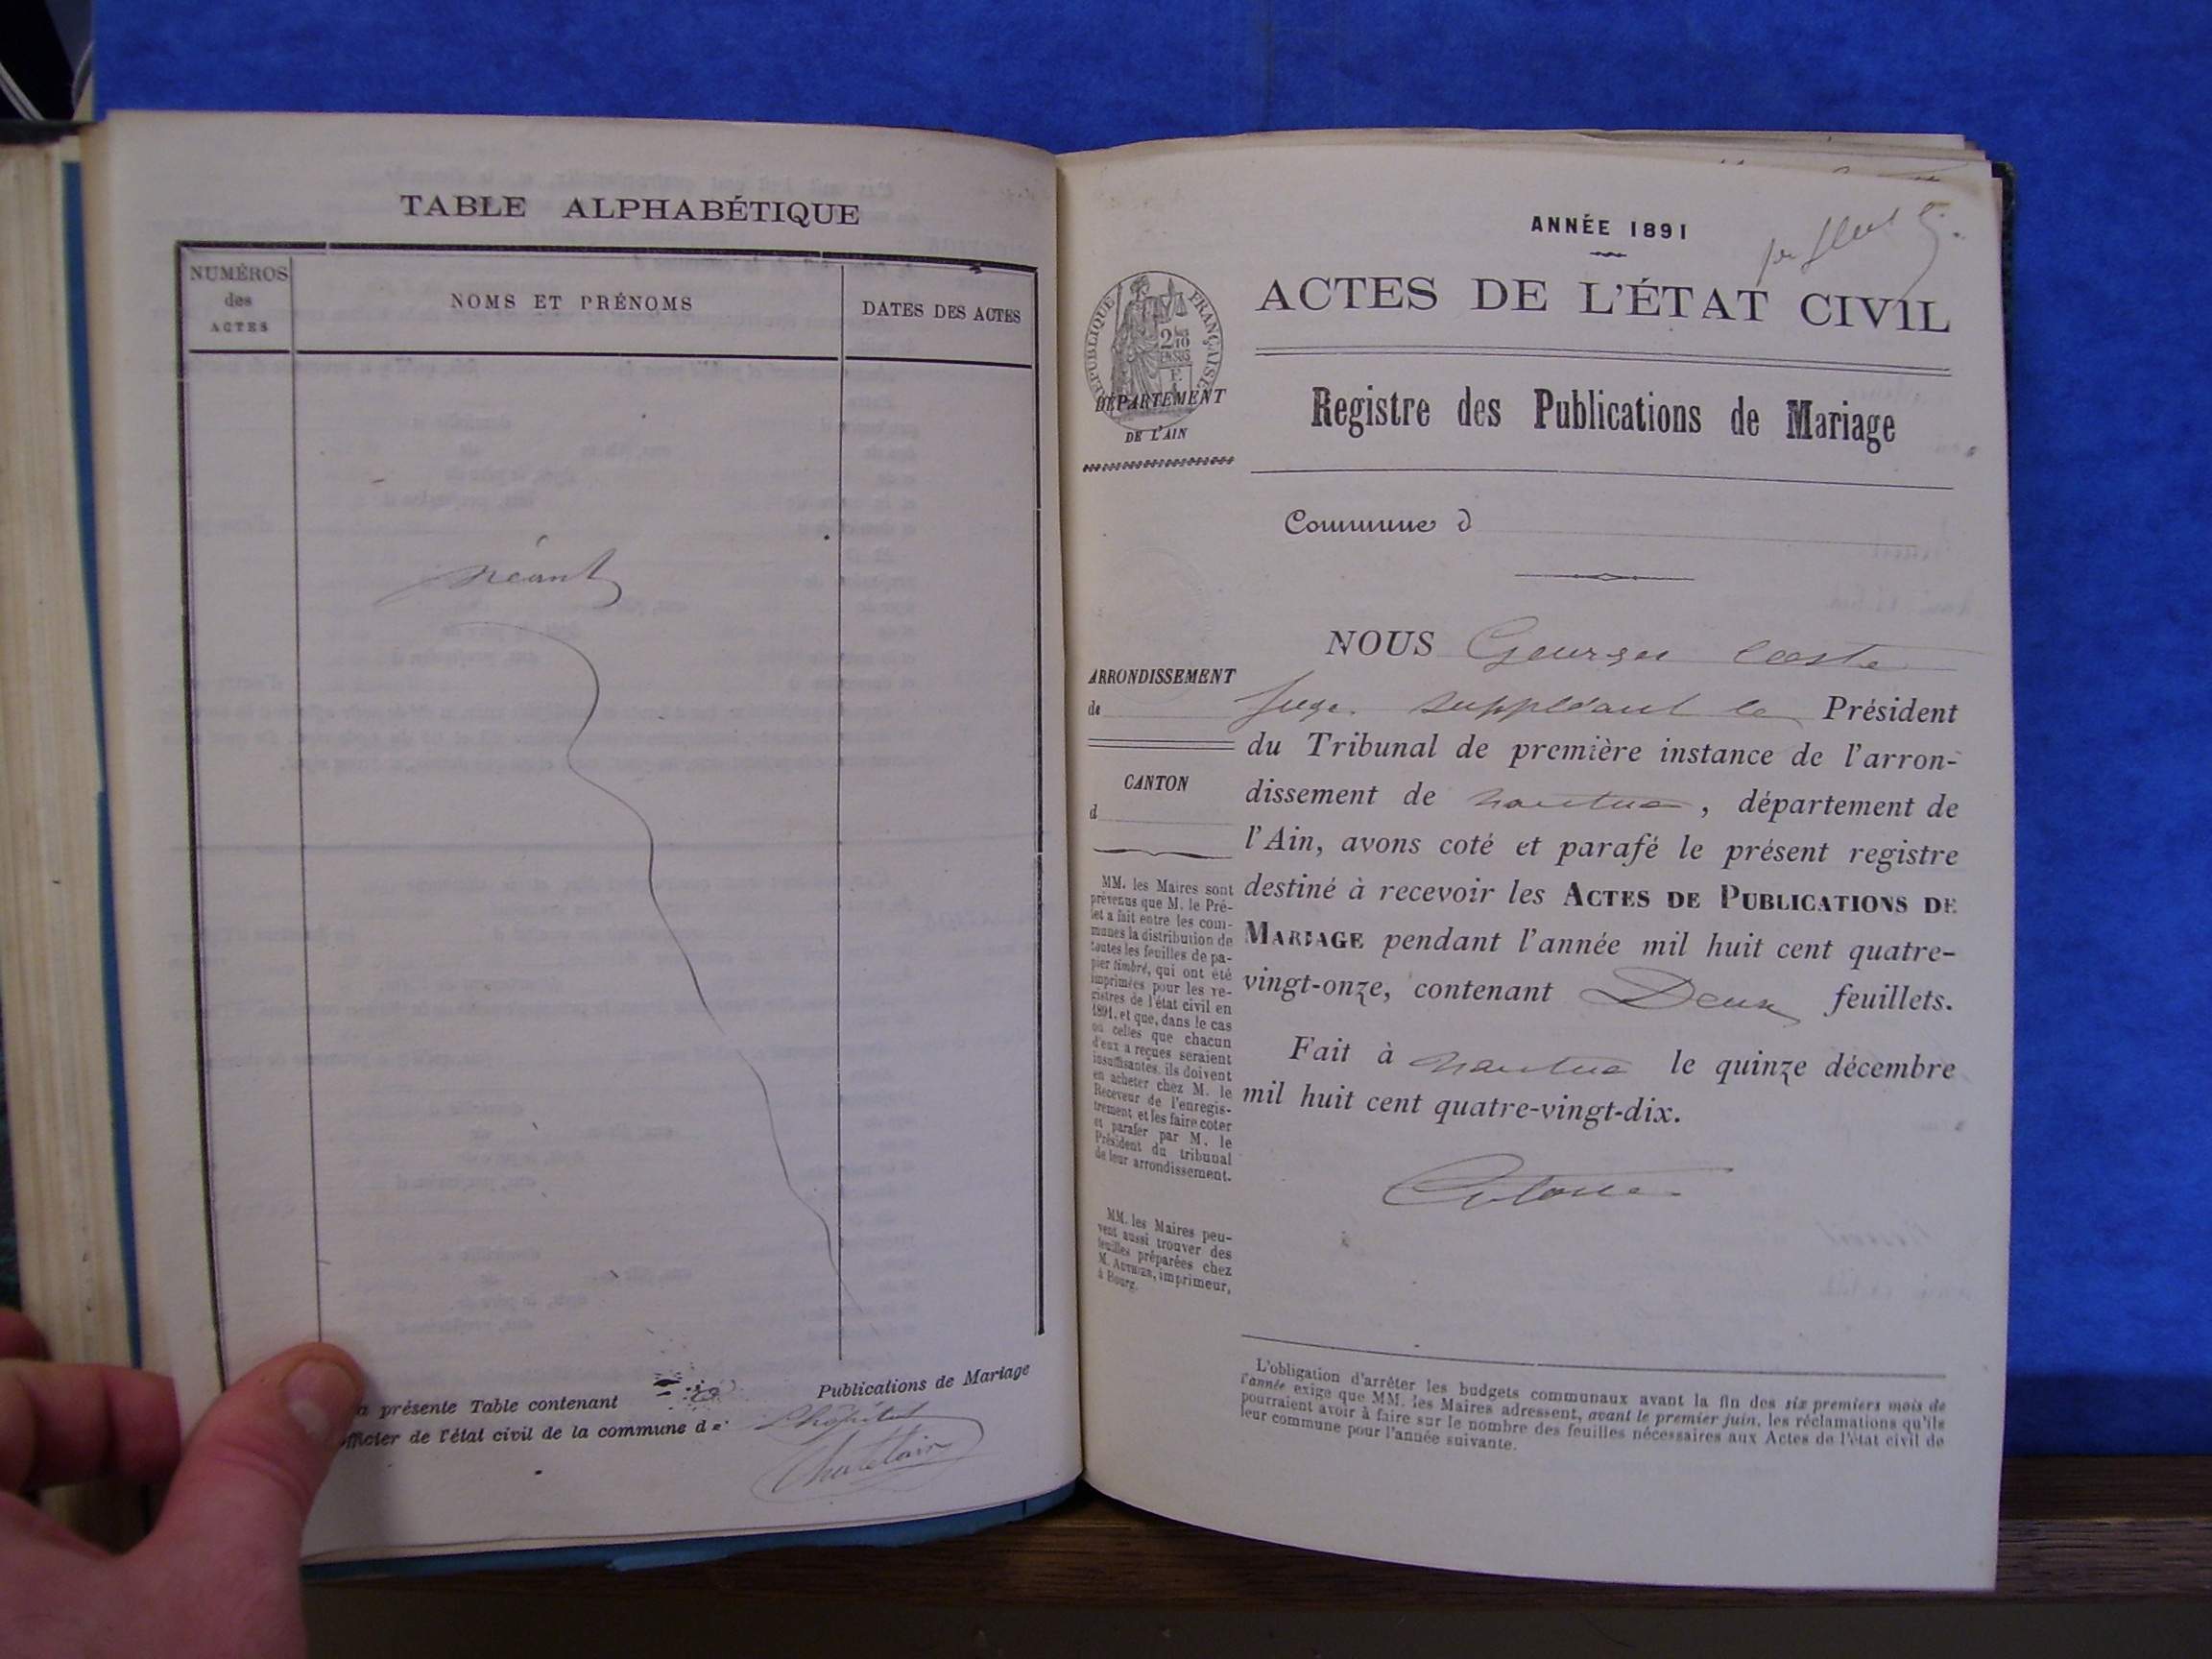 TABLE ALPHABÉTIQUE
NUMÉROS
des
ACTES
NOMS ET PRÉNOMS
DATES DES ACTES
néant
a présente Table contenant
Publications de Mariage
officier de l'état civil de la commune de
L'hôpital
Chatelain
ANNÉE 1891
ACTES DE L'ÉTAT CIVIL
RÉPUBLIQUE FRANÇAISE
DÉPARTEMENT
DE L'AIN
Registre des Publications de Mariage
Commune d
NOUS Georges Coste
Juge suppléant le Président
du Tribunal de première instance de l'arron-
dissement de nantua, département de
l'Ain, avons coté et parafé le présent registre
destiné à recevoir les ACTES DE PUBLICATIONS DE
MARIAGE pendant l'année mil huit cent quatre-
vingt-onze, contenant Deux feuillets.
Fait à nantua le quinze décembre
mil huit cent quatre-vingt-dix.
ARRONDISSEMENT
de
CANTON
d
MM. les Maires sont
prévenus que M. le Pré-
fet a fait entre les com-
munes la distribution de
toutes les feuilles de pa-
pier timbré, qui ont été
imprimées pour les re-
gistres de l'état civil en
1891, et que, dans le cas
où celles que chacun
d'eux a reçues seraient
insuffisantes, ils doivent
en acheter chez M. le
Receveur de l'enregis-
trement et les faire coter
et parafer par M. le
Président du tribunal
de leur arrondissement.
MM. les Maires peu-
vent aussi trouver des
feuilles préparées chez
M. AUTHIER, imprimeur,
à Bourg.
L'obligation d'arrêter les budgets communaux avant la fin des six premiers mois de
l'année exige que MM. les Maires adressent, avant le premier juin, les réclamations qu'ils
pourraient avoir à faire sur le nombre des feuilles nécessaires aux Actes de l'état civil de
leur commune pour l'année suivante.